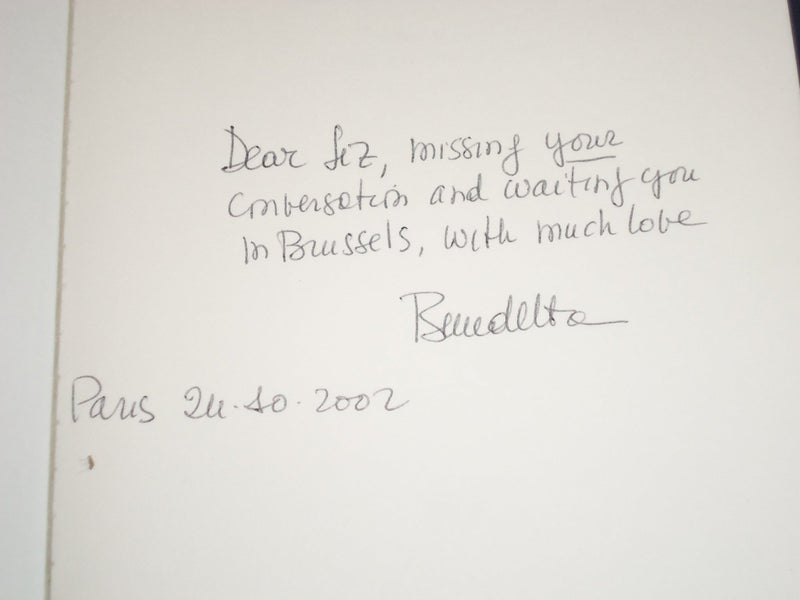 Dear Liz, missing your
conversation and waiting you
in Brussels, with much love
Benedetta
Paris 24.10.2002